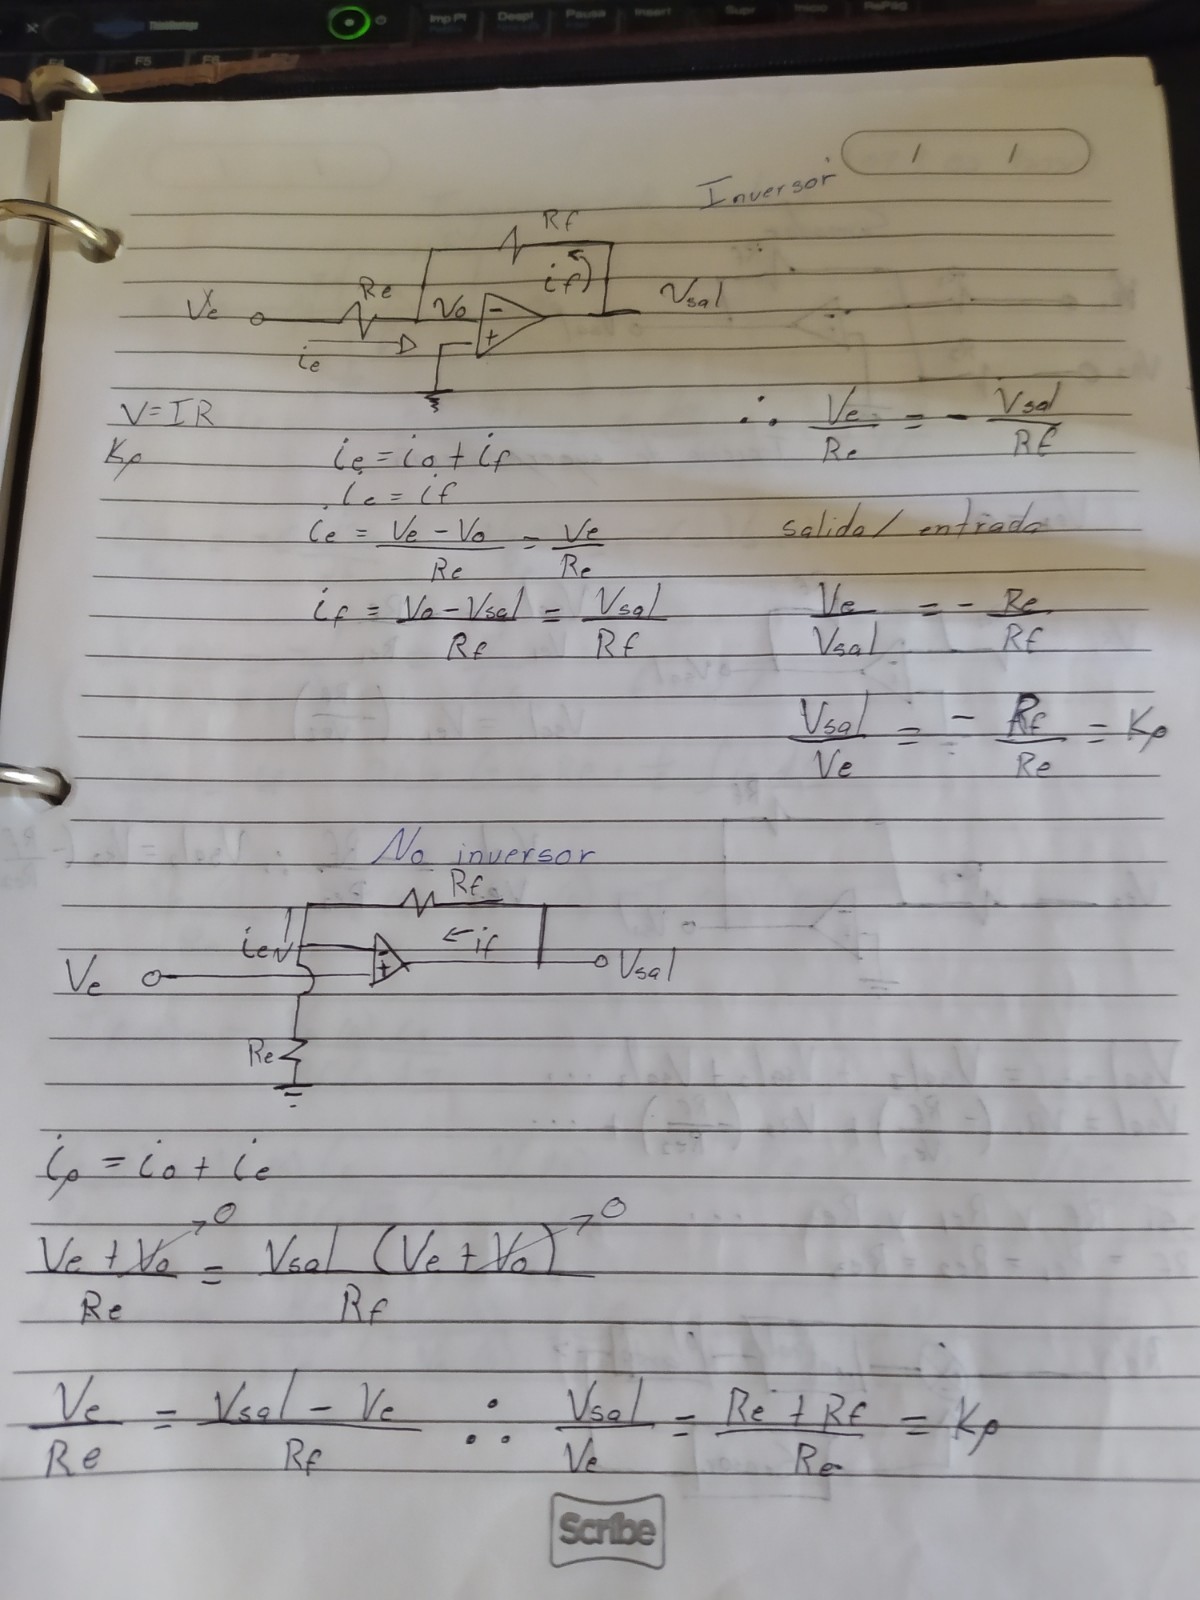 Imp Pt
Despl
Pausa
Insert
Supr
Inicio
RePág
F5
F6
/ /
Inversor
Rf
if
Re
Ve
Vo
Vsal
-
+
ie
V=IR
∴ Ve/Re = - Vsal/Rf
Kp
ie = io + if
ie = if
ie = (Ve - Vo)/Re = Ve/Re
salida / entrada
if = (Vo - Vsal)/Rf = Vsal/Rf
Ve/Vsal = - Re/Rf
Vsal/Ve = - Rf/Re = Kp
No inversor
Rf
ie
← if
-
+
Ve
Vsal
Re
ip = io + ie
(Ve + Vo→0)/Re = Vsal (Ve + Vo→0)/Rf
Ve/Re = (Vsal - Ve)/Rf ∴ Vsal/Ve = (Re + Rf)/Re = Kp
Scribe